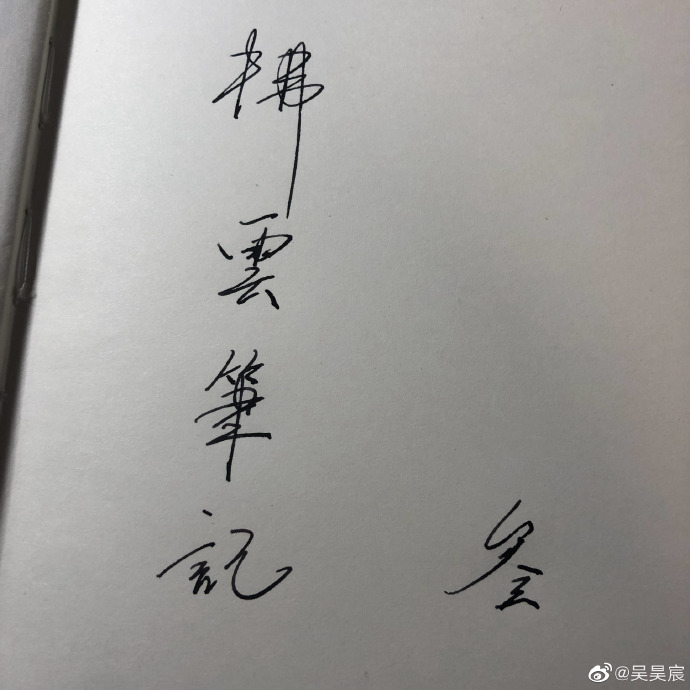 拂雲筆記
叁
@吴昊宸